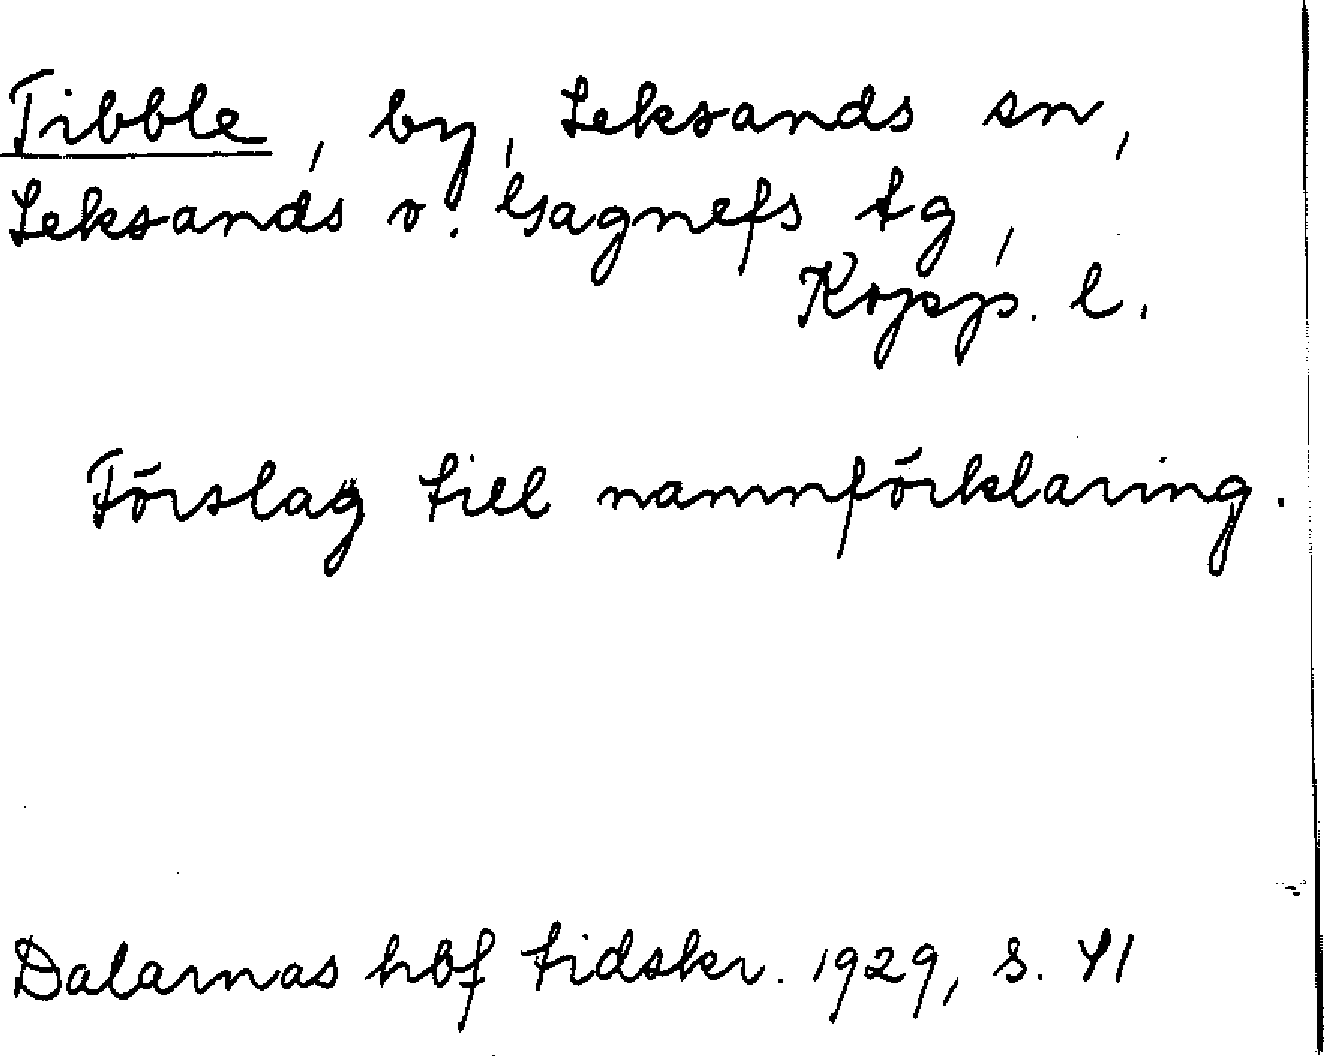 Tibble, by, Leksands sn,
Leksands o. Gagnefs tg,
Kopp. l.
Förslag till namnförklaring.
Dalarnas hbf tidskr. 1929, s. 41